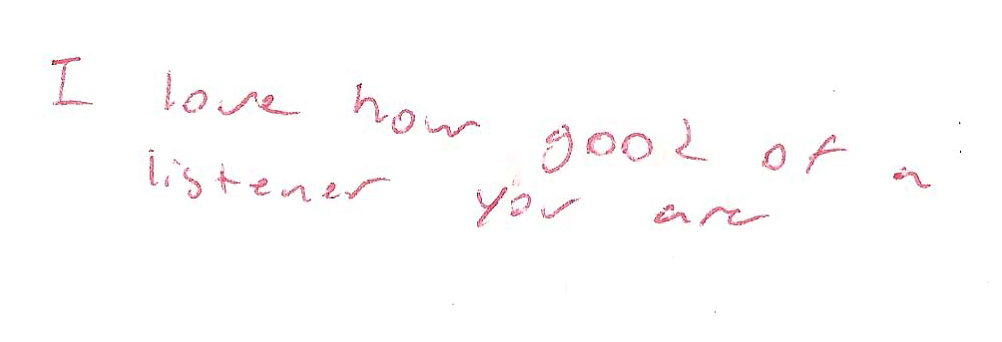 I love how good of a
listener you are